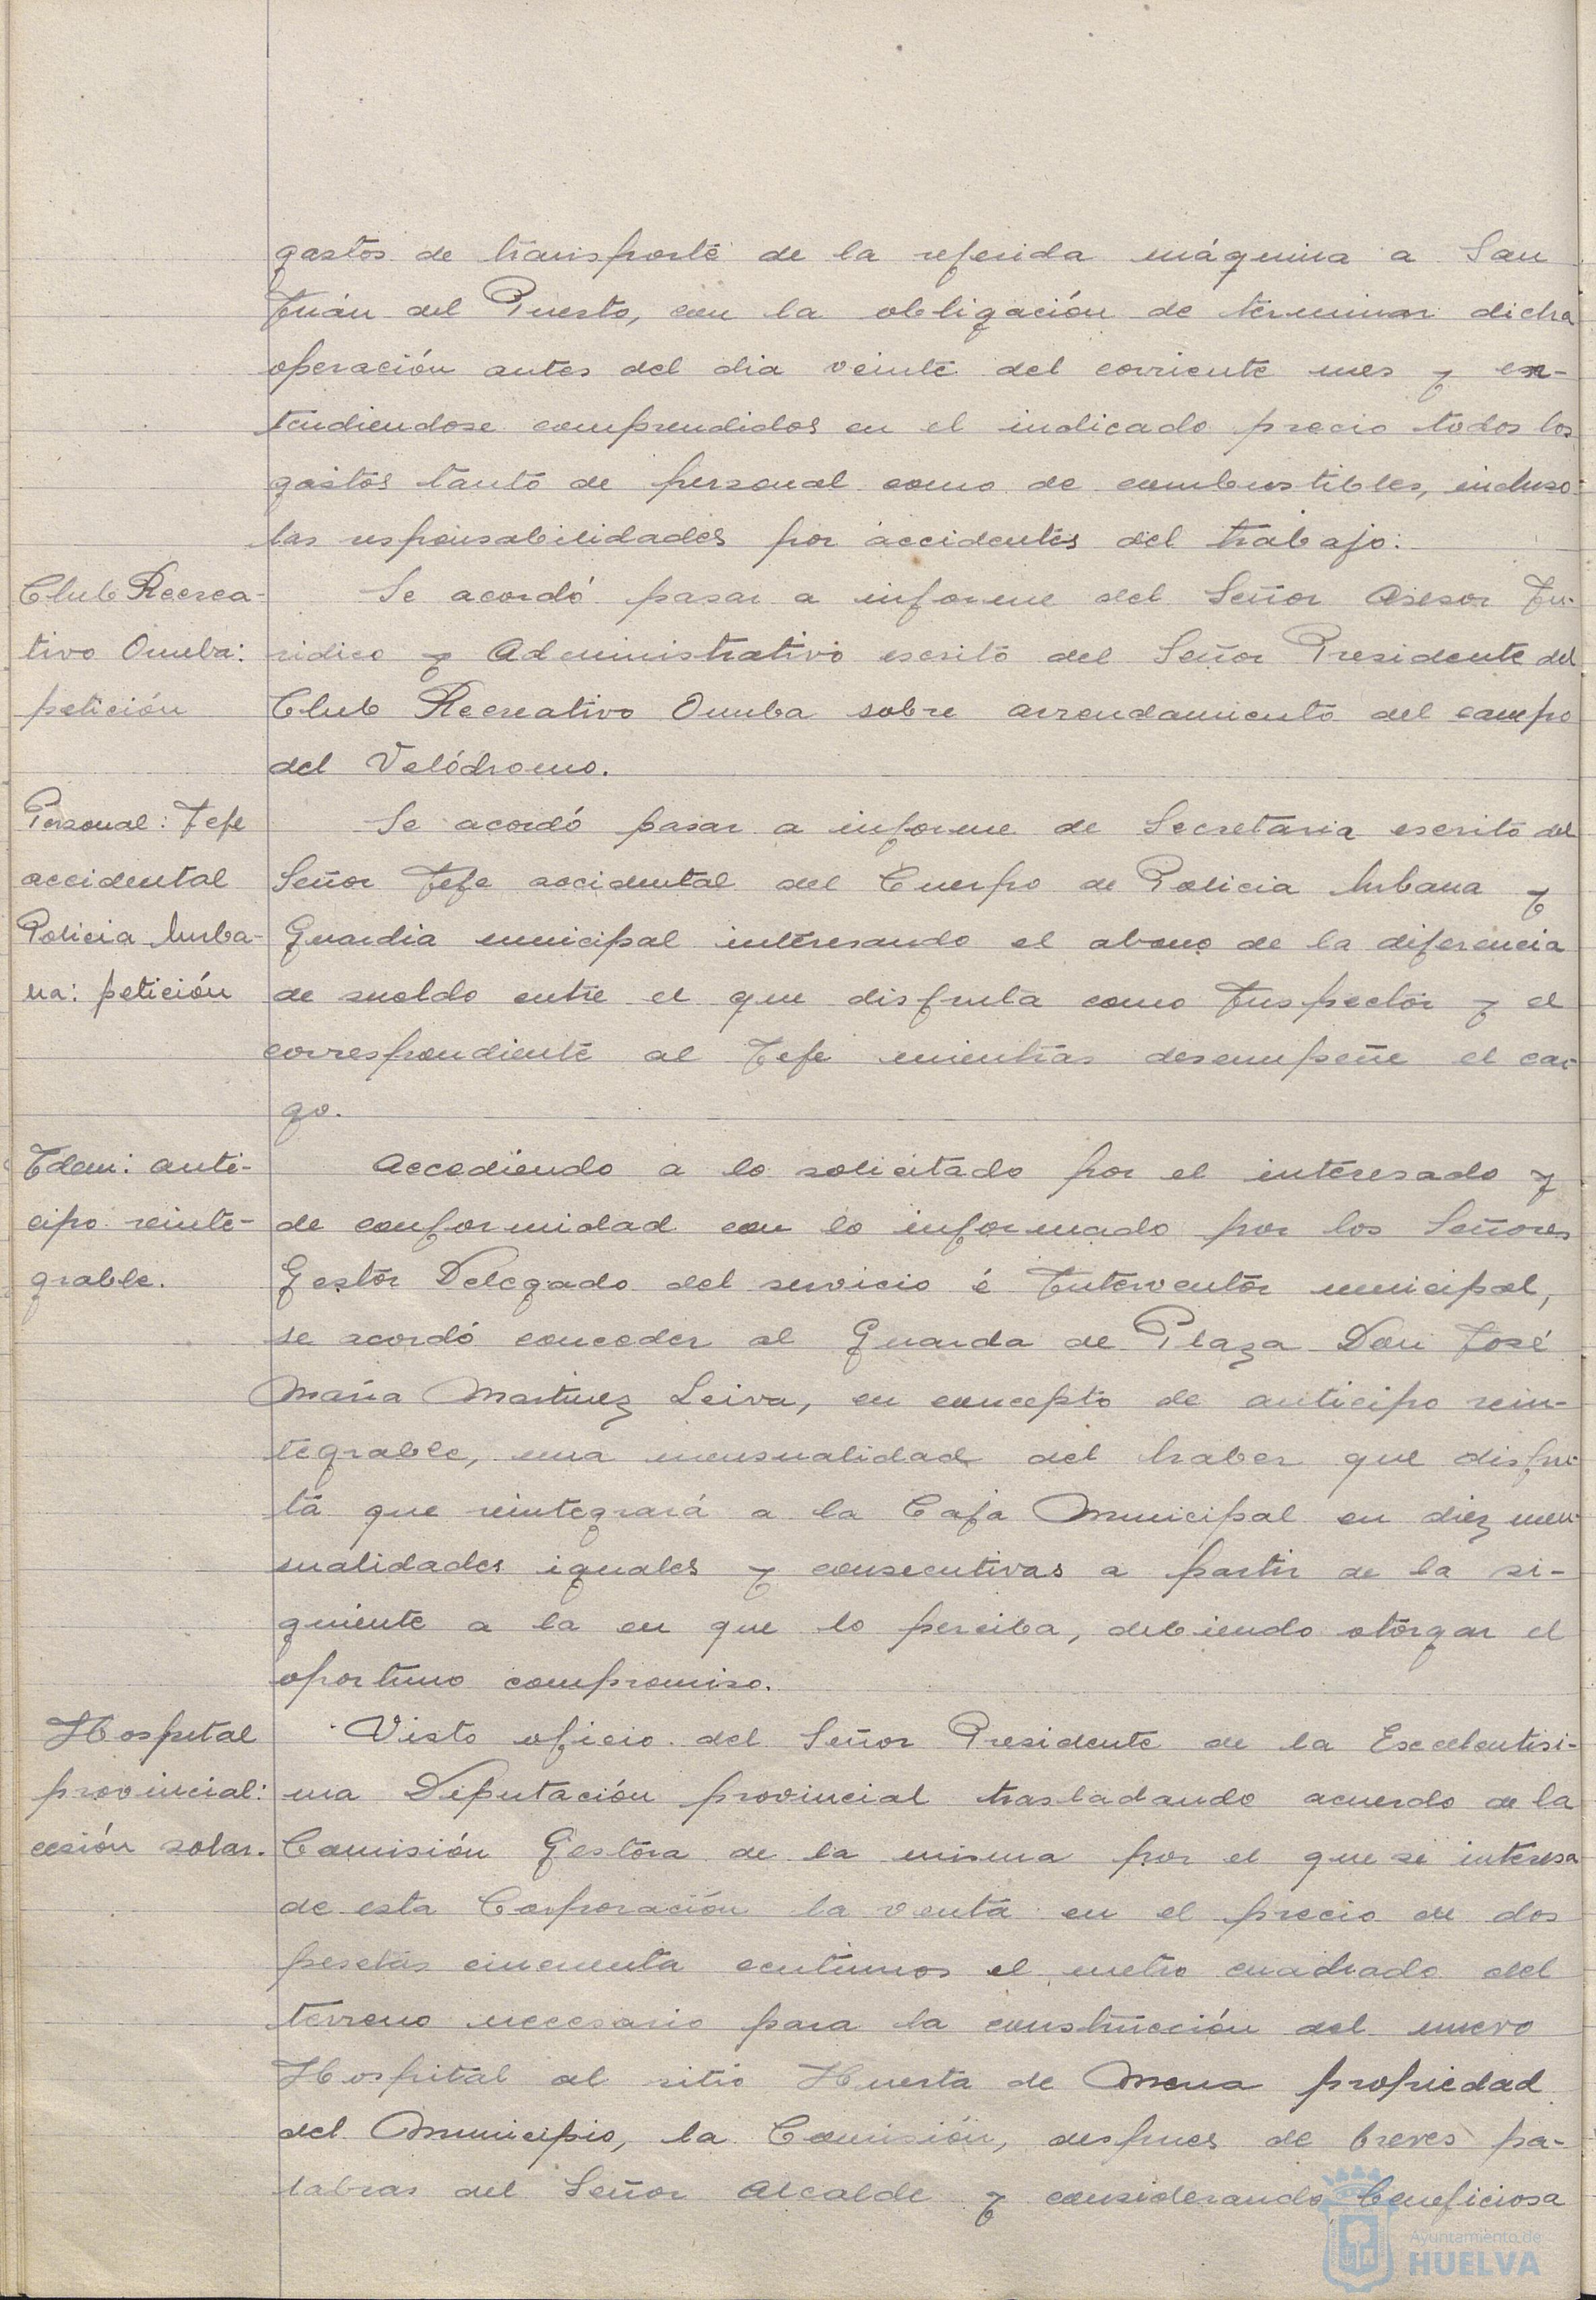 gastos de transporte de la referida máquina a San
Juan del Puerto, con la obligación de terminar dicha
operación antes del dia veinte del corriente mes y en-
tendiendose comprendidos en el indicado precio todos los
gastos tanto de personal como de combustibles, incluso
las responsabilidades por accidentes del trabajo.
Club Recrea-
tivo Onuba:
petición
Se acordó pasar a informe del Señor Asesor Ju-
ridico y Administrativo escrito del Señor Presidente del
Club Recreativo Onuba sobre arrendamiento del campo
del Velódromo.
Personal: Jefe
accidental
Policia Urba-
na: petición
Se acordó pasar a informe de Secretaria escrito del
Señor Jefe accidental del Cuerpo de Policia Urbana y
Guardia municipal interesando el abono de la diferencia
de sueldo entre el que disfruta como Inspector y el
correspondiente al Jefe mientras desempeñe el car-
go.
Idem: anti-
cipo reinte-
grable.
Accediendo a lo solicitado por el interesado y
de conformidad con lo informado por los Señores
Gestor Delegado del servicio é Interventor municipal,
se acordó conceder al Guarda de Plaza Don José
Maria Martinez Leiva, en concepto de anticipo rein-
tegrable, una mensualidad del haber que disfru-
ta que reintegrará a la Caja Municipal en diez men-
sualidades iguales y consecutivas a partir de la si-
guiente a la en que lo perciba, debiendo otorgar el
oportuno compromiso.
Hospital
provincial:
cesión solar.
Visto oficio del Señor Presidente de la Excelentisi-
ma Diputación provincial trasladando acuerdo de la
Comisión Gestora de la misma por el que se interesa
de esta Corporación la venta en el precio de dos
pesetas cincuenta centimos el metro cuadrado del
terreno necesario para la construcción del nuevo
Hospital al sitio Huerta de Mena propiedad
del Municipio, la Comisión, despues de breves pa-
labras del Señor Alcalde y considerando beneficiosa
Ayuntamiento de
HUELVA